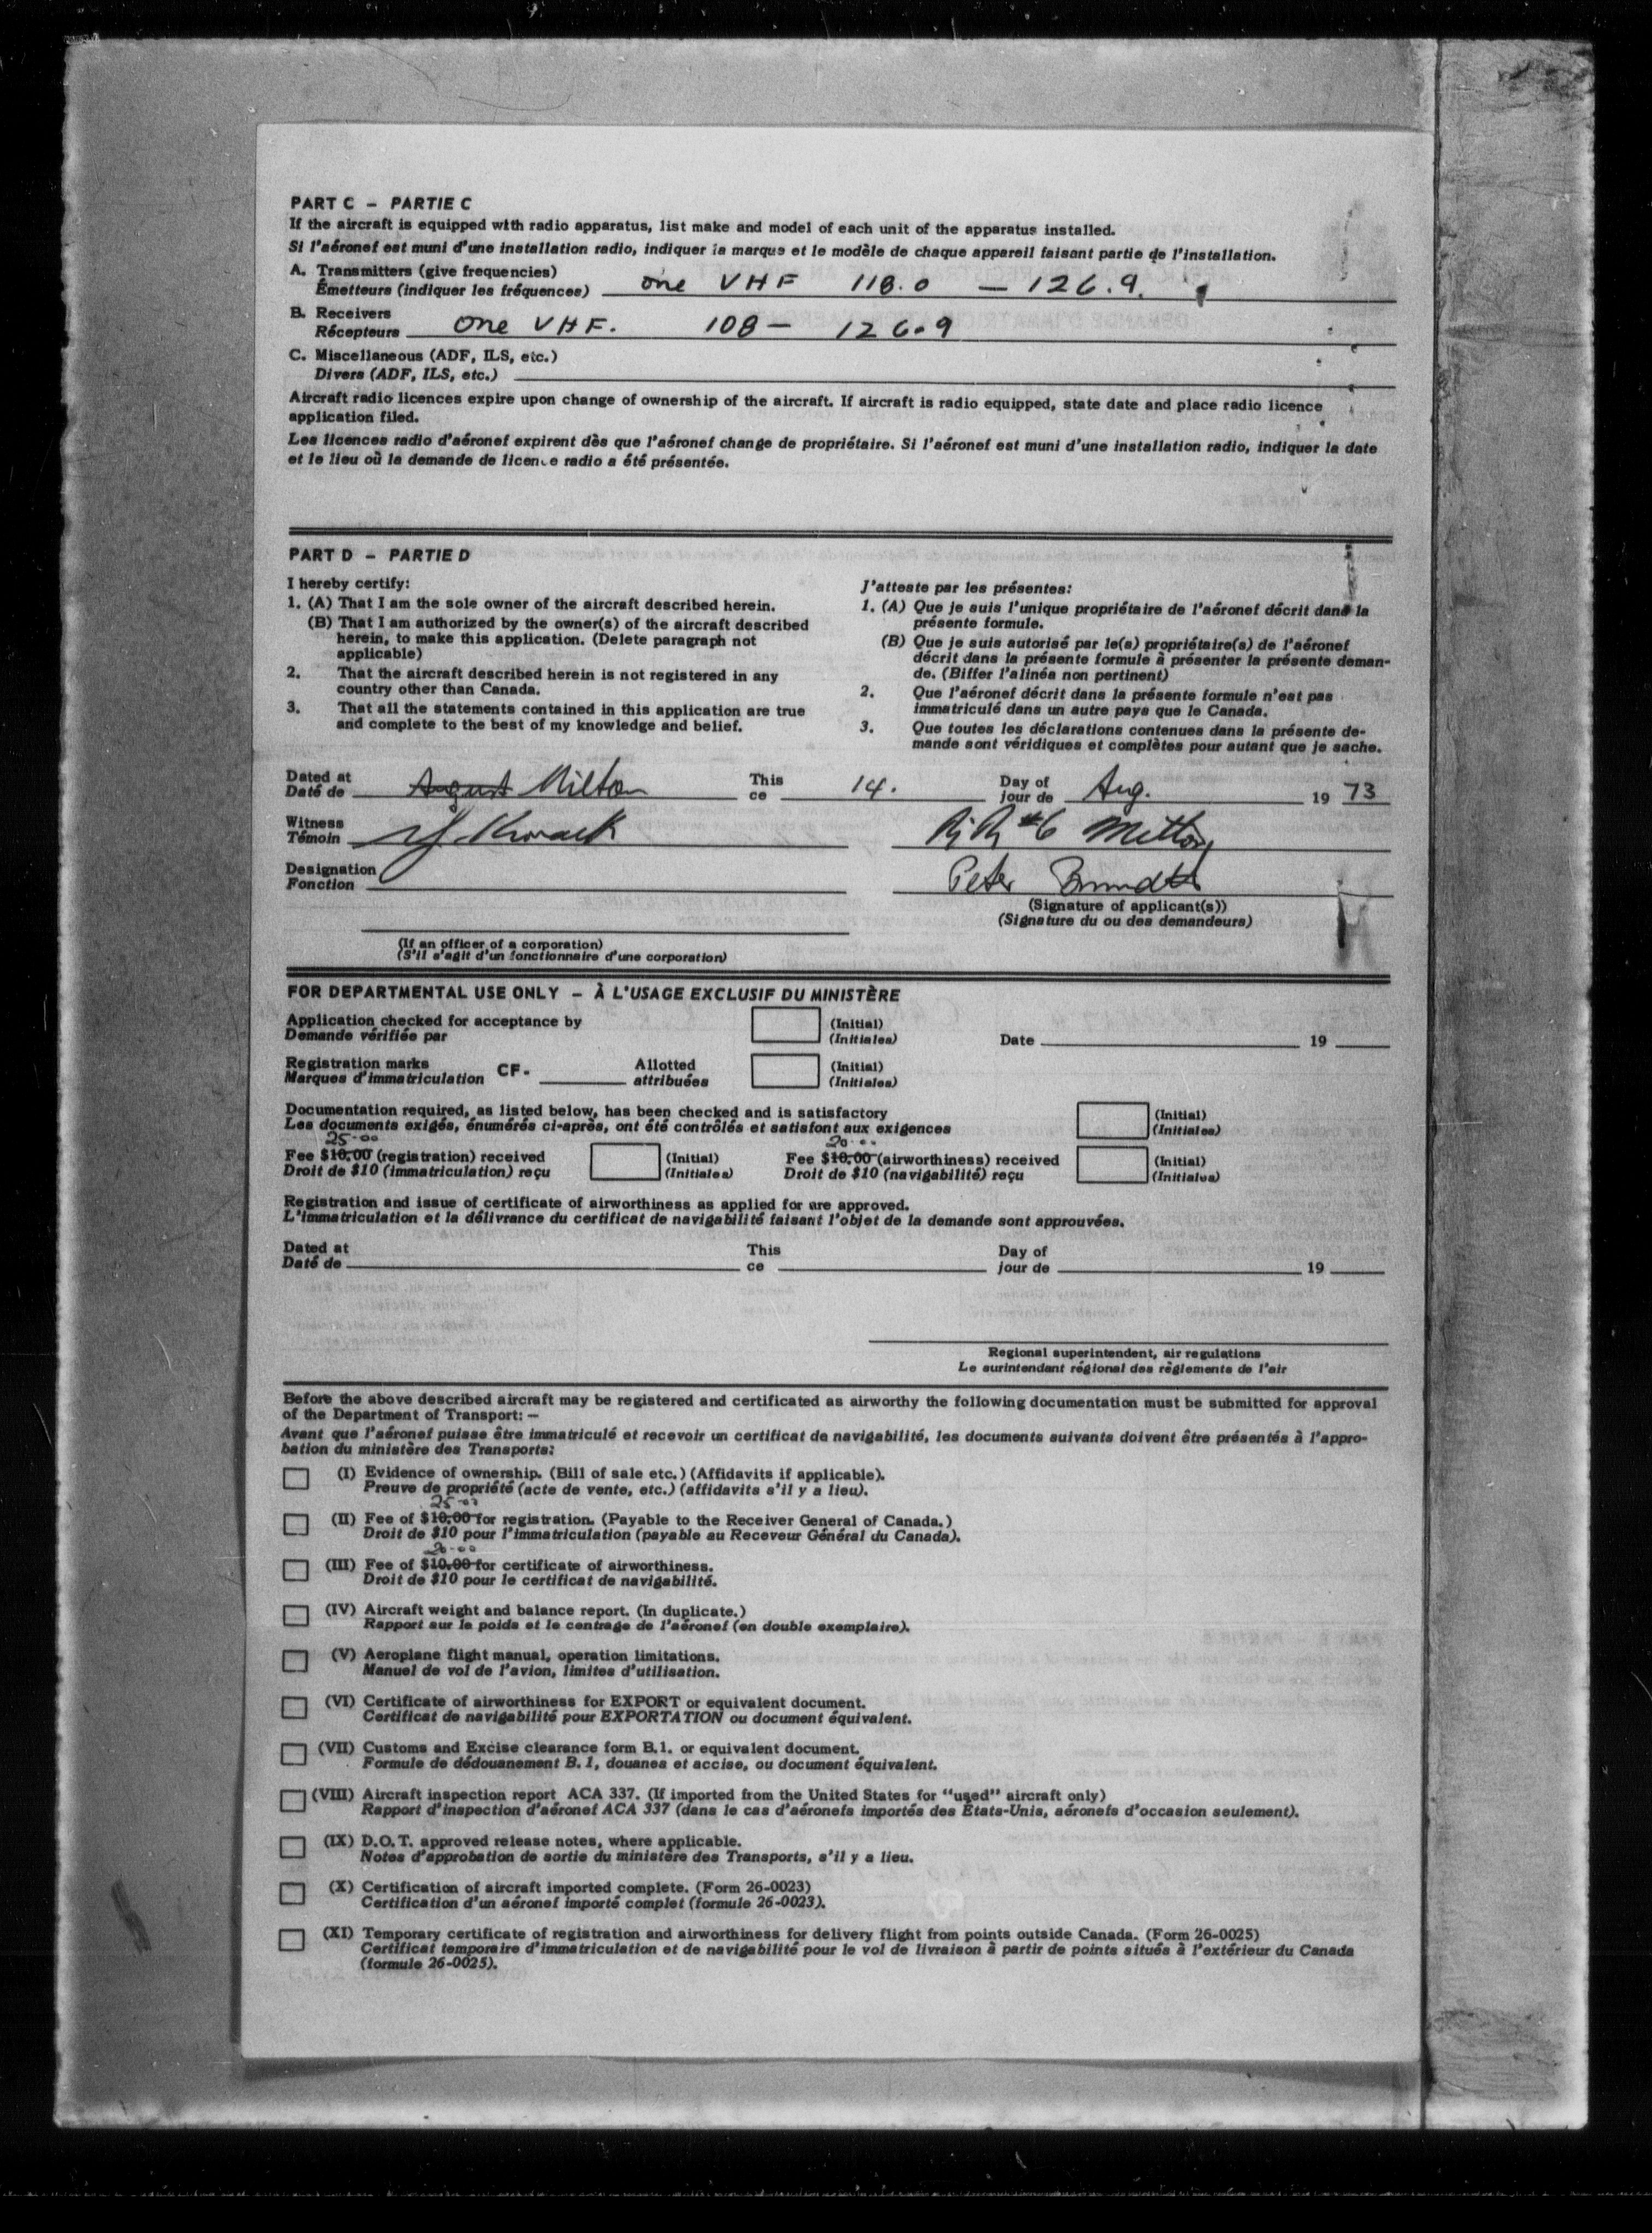 PART C – PARTIE C
If the aircraft is equipped with radio apparatus, list make and model of each unit of the apparatus installed.
Si l'aéronef est muni d'une installation radio, indiquer la marque et le modèle de chaque appareil faisant partie de l'installation.
A. Transmitters (give frequencies)
Émetteurs (indiquer les fréquences) one VHF 118.0 — 126.9.
B. Receivers
Récepteurs one VHF. 108 — 126.9
C. Miscellaneous (ADF, ILS, etc.)
Divers (ADF, ILS, etc.)
Aircraft radio licences expire upon change of ownership of the aircraft. If aircraft is radio equipped, state date and place radio licence
application filed.
Les licences radio d'aéronef expirent dès que l'aéronef change de propriétaire. Si l'aéronef est muni d'une installation radio, indiquer la date
et le lieu où la demande de licence radio a été présentée.
PART D – PARTIE D
I hereby certify:
1. (A) That I am the sole owner of the aircraft described herein.
(B) That I am authorized by the owner(s) of the aircraft described
herein, to make this application. (Delete paragraph not
applicable)
2. That the aircraft described herein is not registered in any
country other than Canada.
3. That all the statements contained in this application are true
and complete to the best of my knowledge and belief.
J'atteste par les présentes:
1. (A) Que je suis l'unique propriétaire de l'aéronef décrit dans la
présente formule.
(B) Que je suis autorisé par le(s) propriétaire(s) de l'aéronef
décrit dans la présente formule à présenter la présente deman-
de. (Biffer l'alinéa non pertinent)
2. Que l'aéronef décrit dans la présente formule n'est pas
immatriculé dans un autre pays que le Canada.
3. Que toutes les déclarations contenues dans la présente de-
mande sont véridiques et complètes pour autant que je sache.
Dated at This Day of
Daté de August Milton ce 14. jour de Aug. 19 73
Witness
Témoin RR #6 Milton
Designation
Fonction Peter
(Signature of applicant(s))
(Signature du ou des demandeurs)
(If an officer of a corporation)
(S'il s'agit d'un fonctionnaire d'une corporation)
FOR DEPARTMENTAL USE ONLY – À L'USAGE EXCLUSIF DU MINISTÈRE
Application checked for acceptance by (Initial)
Demande vérifiée par (Initiales) Date 19
Registration marks CF- Allotted (Initial)
Marques d'immatriculation attribuées (Initiales)
Documentation required, as listed below, has been checked and is satisfactory (Initial)
Les documents exigés, énumérés ci-après, ont été contrôlés et satisfont aux exigences (Initiales)
25.00 20.00
Fee $10.00 (registration) received (Initial) Fee $10.00 (airworthiness) received (Initial)
Droit de $10 (immatriculation) reçu (Initiales) Droit de $10 (navigabilité) reçu (Initiales)
Registration and issue of certificate of airworthiness as applied for are approved.
L'immatriculation et la délivrance du certificat de navigabilité faisant l'objet de la demande sont approuvées.
Dated at This Day of
Daté de ce jour de 19
Regional superintendent, air regulations
Le surintendant régional des règlements de l'air
Before the above described aircraft may be registered and certificated as airworthy the following documentation must be submitted for approval
of the Department of Transport: —
Avant que l'aéronef puisse être immatriculé et recevoir un certificat de navigabilité, les documents suivants doivent être présentés à l'appro-
bation du ministère des Transports:
(I) Evidence of ownership. (Bill of sale etc.) (Affidavits if applicable).
Preuve de propriété (acte de vente, etc.) (affidavits s'il y a lieu).
25.00
(II) Fee of $10.00 for registration. (Payable to the Receiver General of Canada.)
Droit de $10 pour l'immatriculation (payable au Receveur Général du Canada).
20.00
(III) Fee of $10.00 for certificate of airworthiness.
Droit de $10 pour le certificat de navigabilité.
(IV) Aircraft weight and balance report. (In duplicate.)
Rapport sur le poids et le centrage de l'aéronef (en double exemplaire).
(V) Aeroplane flight manual, operation limitations.
Manuel de vol de l'avion, limites d'utilisation.
(VI) Certificate of airworthiness for EXPORT or equivalent document.
Certificat de navigabilité pour EXPORTATION ou document équivalent.
(VII) Customs and Excise clearance form B.1. or equivalent document.
Formule de dédouanement B.1, douanes et accise, ou document équivalent.
(VIII) Aircraft inspection report ACA 337. (If imported from the United States for "used" aircraft only)
Rapport d'inspection d'aéronef ACA 337 (dans le cas d'aéronefs importés des États-Unis, aéronefs d'occasion seulement).
(IX) D.O.T. approved release notes, where applicable.
Notes d'approbation de sortie du ministère des Transports, s'il y a lieu.
(X) Certification of aircraft imported complete. (Form 26-0023)
Certification d'un aéronef importé complet (formule 26-0023).
(XI) Temporary certificate of registration and airworthiness for delivery flight from points outside Canada. (Form 26-0025)
Certificat temporaire d'immatriculation et de navigabilité pour le vol de livraison à partir de points situés à l'extérieur du Canada
(formule 26-0025).